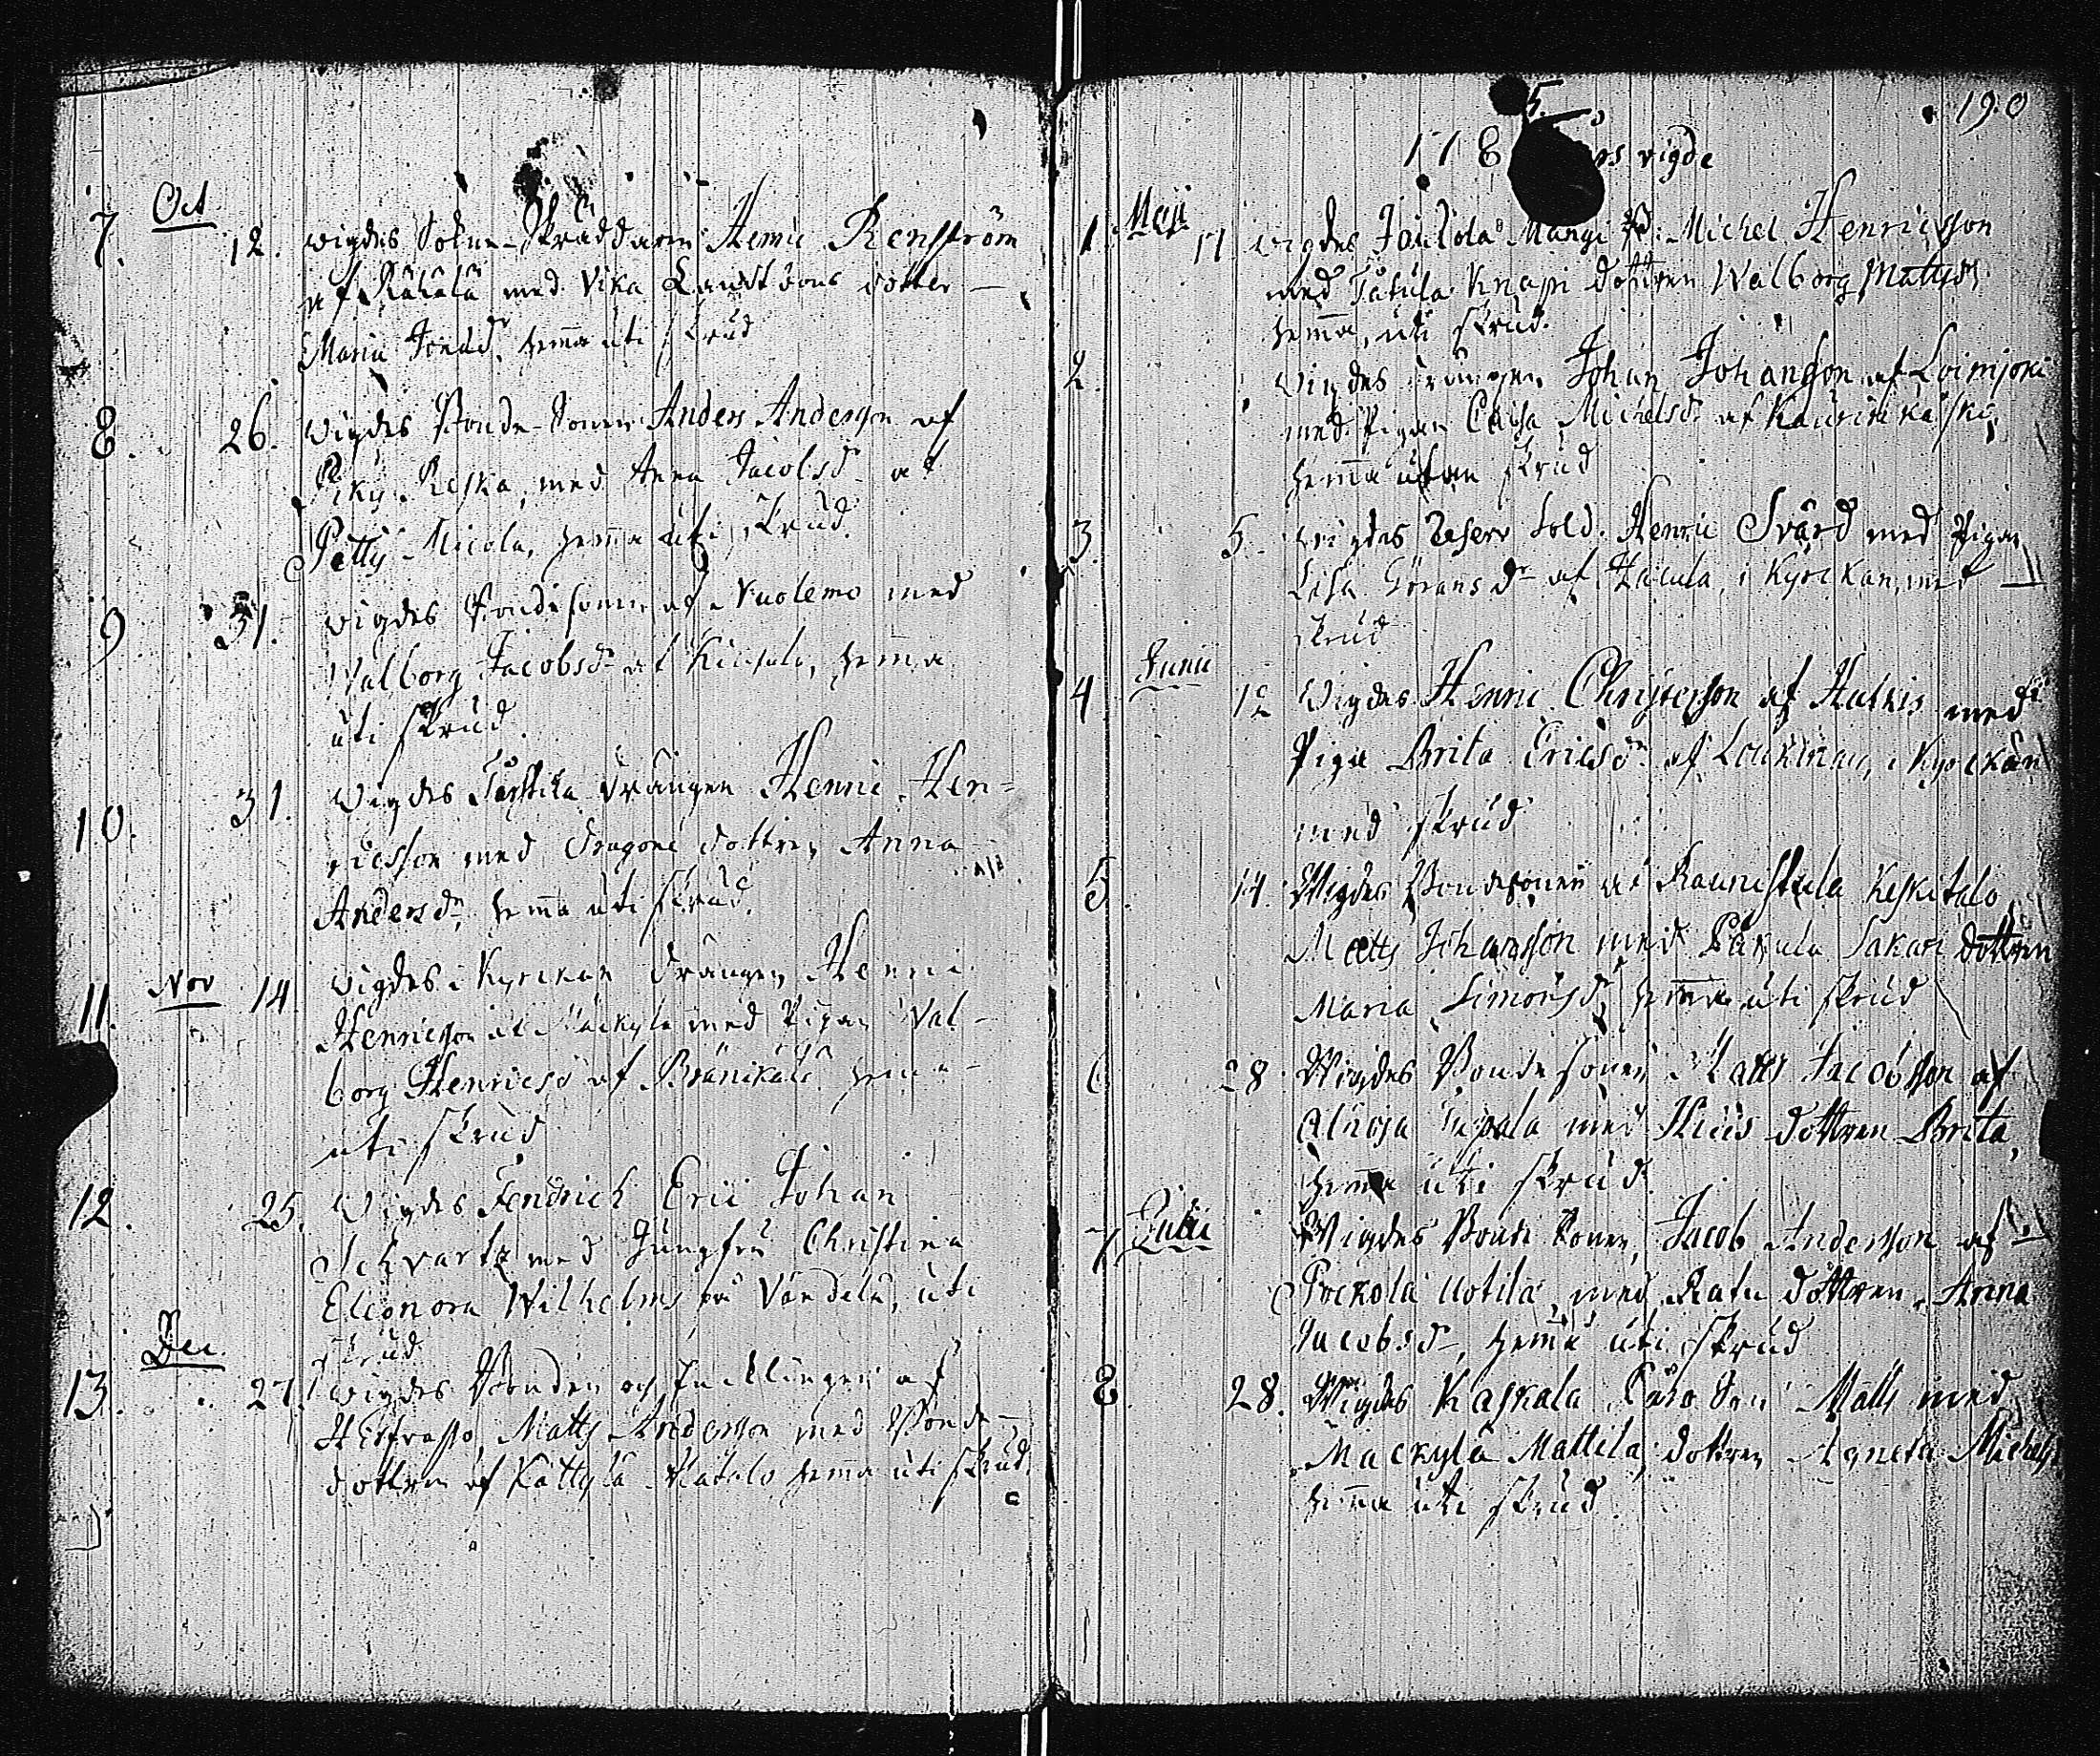 Oct
7. 12. wigdes Sokne-Skräddaren Henric Renström
af Räkälä med Vika Landtbons dotter
Maria Jonæd. hem̅a uti skrud
8. 26. wigdes Bonde-Sonen Anders Andersson af
Piky Reska, med Anna Jacobsd. af
Petty Micola, hem̅a uti skrud.
9 31. wigdes Bondesonen af Nuolemo med
Walborg Jacobsd. af hem̅a
uti skrud.
10. 31. wigdes drängen Henric Hen=
ricsson med Dragone dottren Anna
Andersdr hem̅a uti skrud.
11. Nov 14 wigdes i Kyrckan drängen Henric
Henricsson af Mäckylä med Pigan Val-
borg Henricsd af hem̅a
uti skrud
12. 25. Wigdes Fendrich Eric Johan
Schvartz med Jungfru Christina
Eleonora Wilhelms på Vändelä, uti
skrud
Dec.
13. 27. wigdes Bonden och Encklingen af
Matts Andersson med Bonde-
dottren af Kättylä hem̅a uti skrud.
190
5.
178 års vigde
1. Maji 17 wigdes Mangi Michel Henricsson
med Knapi dottren Walborg Mattsdr
hem̅a, uti skrud.
2. wigdes drängen Johan Johansson af Loimjoki
med Pigan Caisa Michelsd. af
hem̅a utan skrud
3. 5. wigdes Reserv Sold. Henric Svärd med Pigan
Lisa Göransdr af Hacula, i Kyrckan, med
skrud
Junii
4 12 wigdes Henric Christersson af med
Piga Brita Ericsdr af i Kyrckan
med skrud
5. 14. Wigdes Bondesonen af Raunistula Keskitalo
Matts Johansson med Sakari dottren
Maria Simonsdr, hem̅a uti skrud
6 28. Wigdes Bonde sonen Matts Jacobsson af
med Hiiis dottren Brita,
hem̅a uti skrud.
7. Julii Wigdes Bonde Sonen, Jacob Andersson af
Prckolä Uotila, med Ratu dottren Anna
Jacobsdr, hem̅a uti skrud
8. 28. Wigdes Kaskala Son Matts med
Mackylä Mattila dottren Agneta Michels
hem̅a uti skrud.